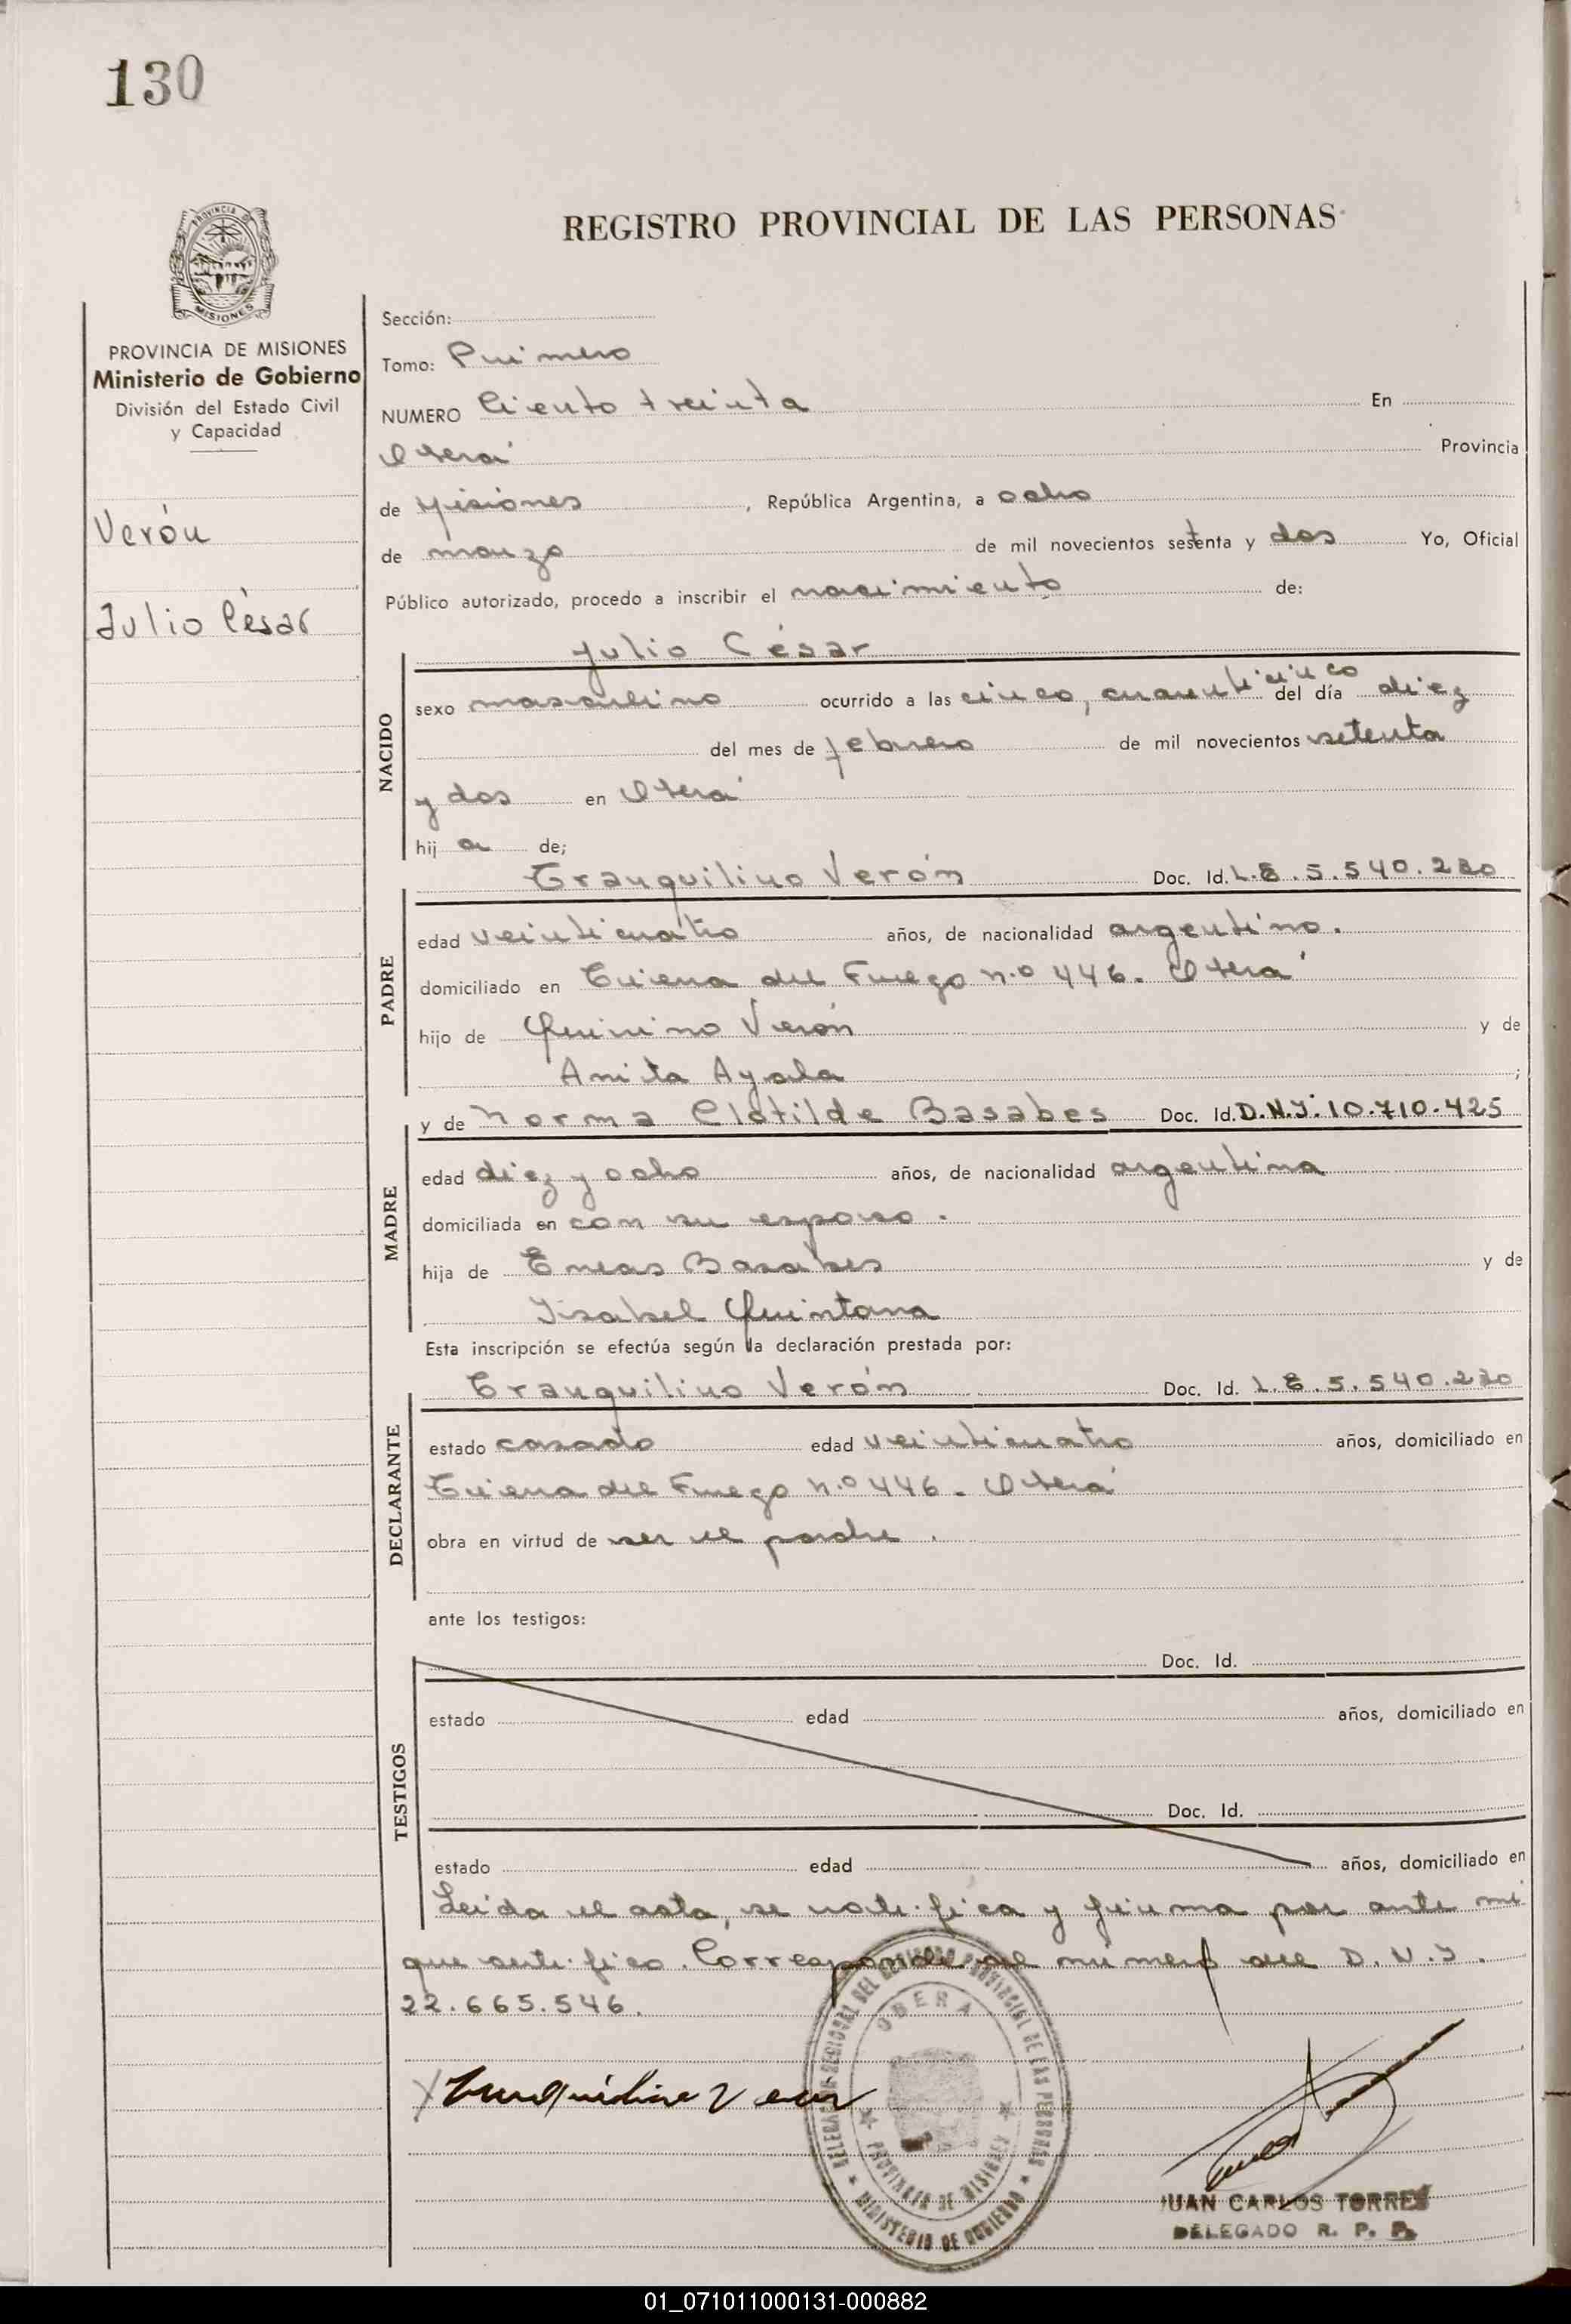 130
REGISTRO PROVINCIAL DE LAS PERSONAS
PROVINCIA DE
MISIONES
PROVINCIA DE MISIONES
Ministerio de Gobierno
División del Estado Civil
y Capacidad
Verón
Julio César
Sección:
Tomo: Primero
NUMERO Ciento treinta En
Oberá Provincia
de Misiones, República Argentina, a ocho
de marzo de mil novecientos setenta y dos Yo, Oficial
Público autorizado, procedo a inscribir el nacimiento de:
Julio César
NACIDO
sexo masculino ocurrido a las cinco, cuarenticinco del día diez
del mes de febrero de mil novecientos setenta
y dos en Oberá
hij o de;
PADRE
Tranquilino Verón Doc. Id. L.E. 5.540.230
edad veinticuatro años, de nacionalidad argentino.
domiciliado en Tierra del Fuego n.o 446. Oberá
hijo de Quirino Verón y de
Anita Ayala ;
MADRE
y de Norma Clotilde Basabes Doc. Id. D.N.I. 10.710.425
edad diez y ocho años, de nacionalidad argentina
domiciliada en con su esposo.
hija de Eneas Basabes y de
Isabel Quintana
Esta inscripción se efectúa según la declaración prestada por:
DECLARANTE
Tranquilino Verón Doc. Id. L.E. 5.540.230
estado casado edad veinticuatro años, domiciliado en
Tierra del Fuego n.o 446. Oberá
obra en virtud de ser el padre.
ante los testigos:
TESTIGOS
Doc. Id.
estado edad años, domiciliado en
Doc. Id.
estado edad años, domiciliado en
Leida el acta, se notifica y firma por ante mi
que certifico. Corresponde el numero del D.N.I.
22.665.546.
Tranquilino Veron
DELEGACION REGIONAL DEL REGISTRO PROVINCIAL DE LAS PERSONAS
OBERA
PROVINCIA DE MISIONES
MINISTERIO DE GOBIERNO
JUAN CARLOS TORRES
DELEGADO R. P. P.
01_071011000131-000882